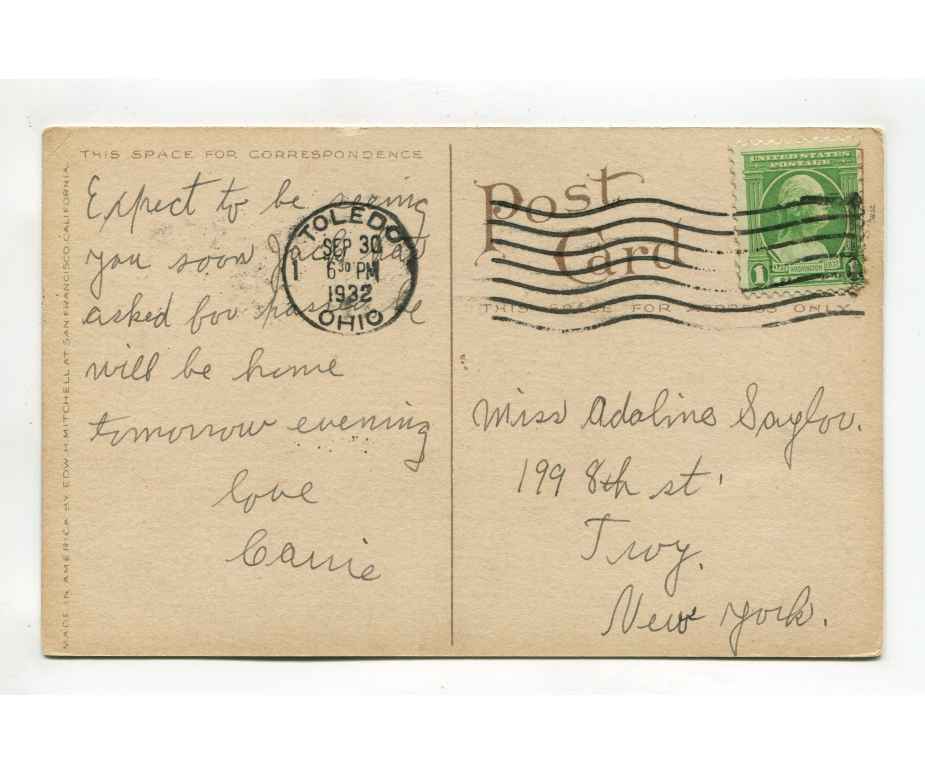 THIS SPACE FOR CORRESPONDENCE
Expect to be seeing
you soon Jack
asked for
will be home
tomorrow evening
love
Carrie
MADE IN AMERICA BY EDW. H. MITCHELL AT SAN FRANCISCO, CALIFORNIA.
TOLEDO
SEP 30
6 30 PM
1932
OHIO
1
Post
Card
THIS SPACE FOR ADDRESS ONLY
UNITED STATES
POSTAGE
WASHINGTON
1
Miss Adaline Saylor.
199 8th st.
Troy.
New York.